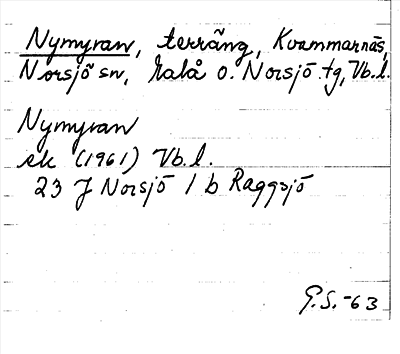 Nymyran, terräng, Kvammarnäs,
Norsjö sn, Malå o. Norsjö tg, Vb.l.
Nymyran
ek (1961) Vb.l.
23 J Norsjö 1 b Raggsjö
G.S.-63